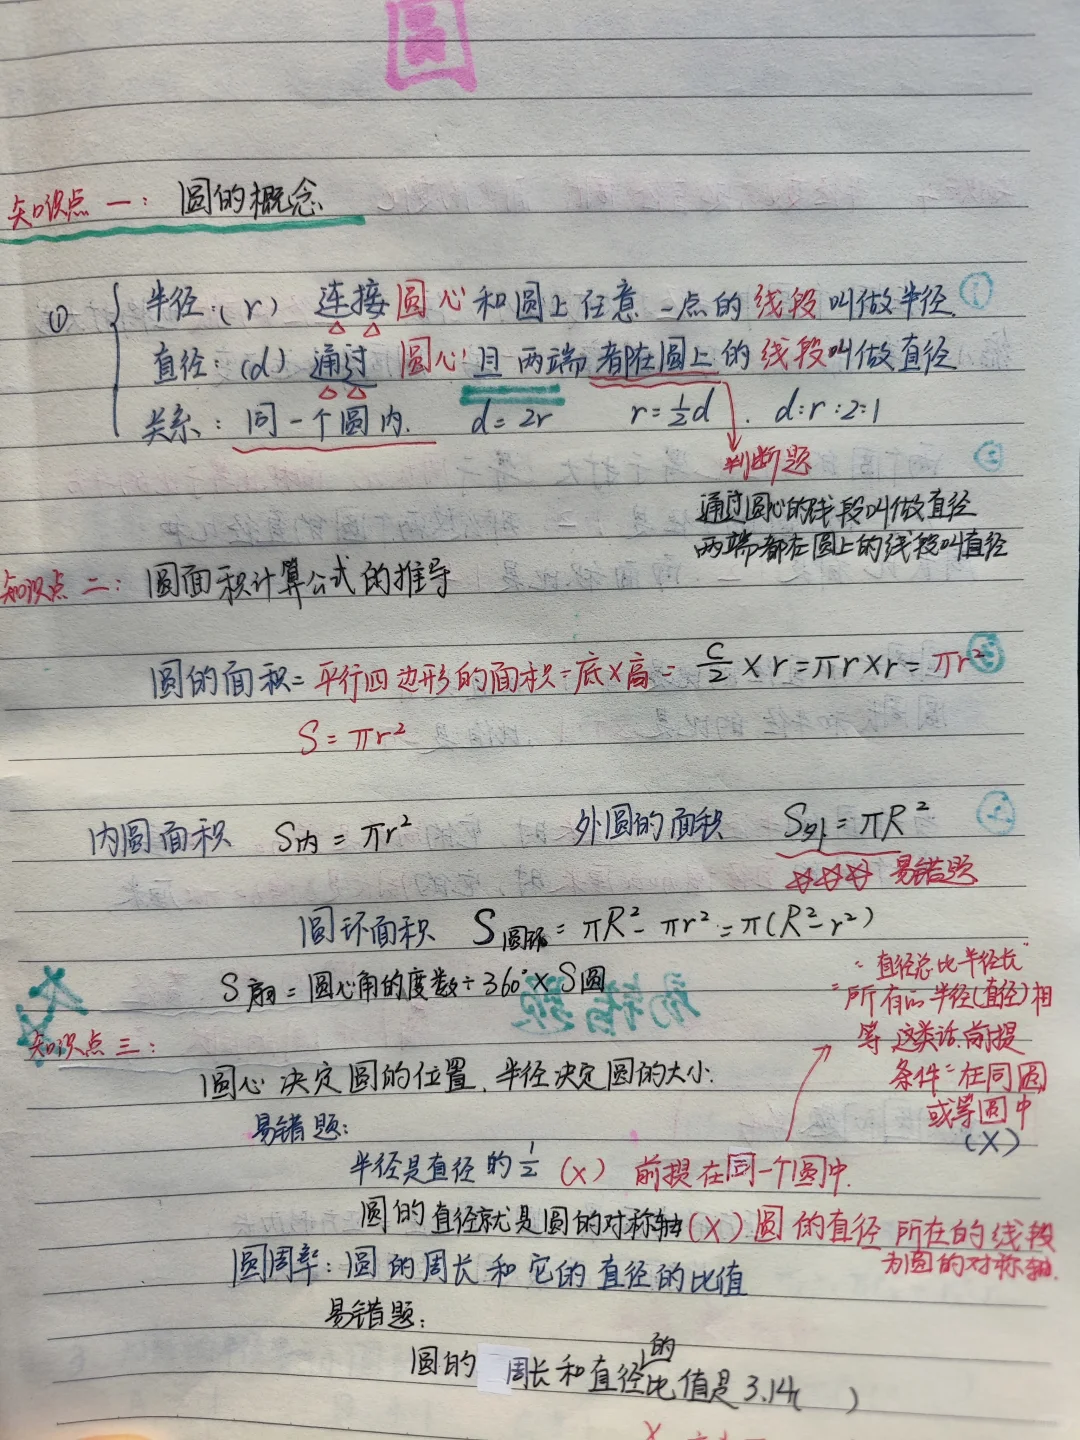 圆
知识点一：圆的概念
① 半径：(r) 连接圆心和圆上任意一点的线段叫做半径
直径：(d) 通过圆心且两端都在圆上的线段叫做直径
关系：同一个圆内. d=2r r=½d. d:r:2:1
判断题
通过圆心的线段叫做直径
两端都在圆上的线段叫直径
知识点二：圆面积计算公式的推导
圆的面积=平行四边形的面积=底×高=C/2×r=πr×r=πr²
S=πr²
内圆面积 S内=πr² 外圆的面积 S外=πR²
易错题
圆环面积 S圆环=πR²-πr²=π(R²-r²)
S扇=圆心角的度数÷360°×S圆
"直径总比半径长"
"所有的半径(直径)相
等 这类话.前提
条件"在同圆
或等圆中
(×)
知识点三：
圆心决定圆的位置.半径决定圆的大小.
易错题:
半径是直径的½ (×) 前提在同一个圆中.
圆的直径就是圆的对称轴(×)圆的直径所在的线段
为圆的对称轴.
圆周率：圆的周长和它的直径的比值
易错题:
圆的周长和直径的比值是3.14( )